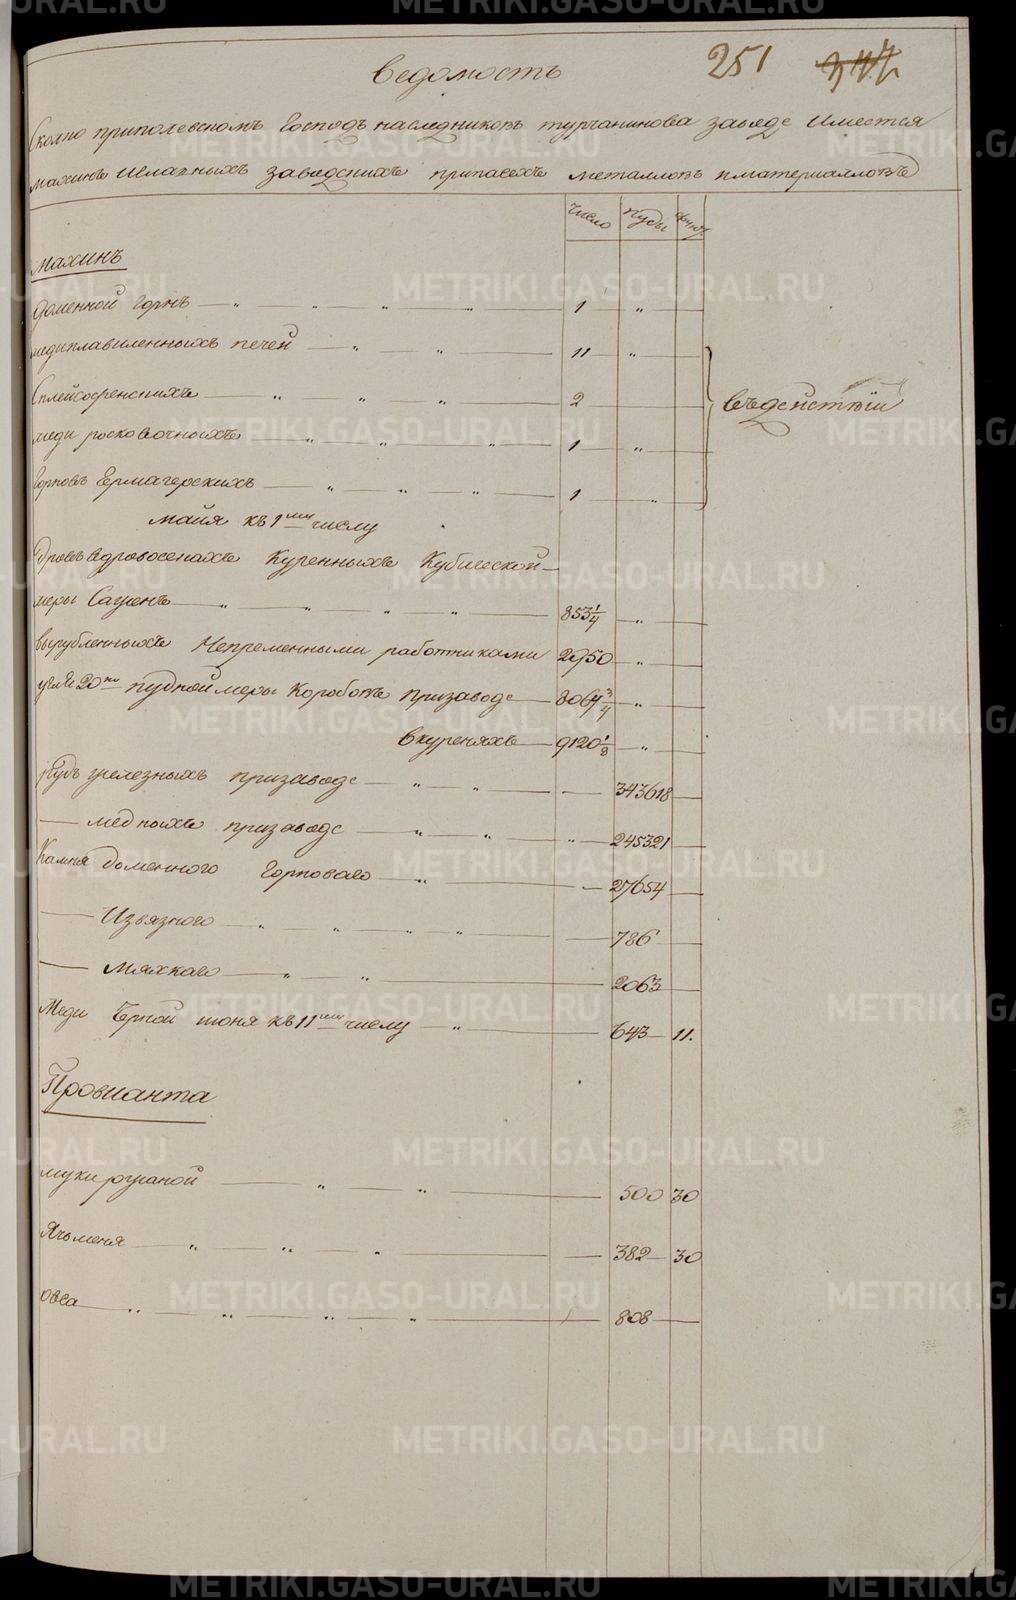 251 347
Ведомость
Сколко приполевскомъ Господъ наследниковъ турчанинова заводе Имеется
махинъ Иглавныхъ заводскихъ припасехъ металловъ иматериалловъ
Число Пуды фунт.
Махинъ
Доменной Горнъ — „ — „ — „ — „ — 1 „
медиплавиленныхъ печей — „ — „ — 11 „
Сплейсофенскихъ — „ — „ — „ — 2
въдействии
меди росковочныхъ — „ — „ — „ — 1 „
Горновъ Гармахерскихъ — „ — „ — „ — 1 „
Майя къ 1му числу
Дровъ вдровосекахъ Куренныхъ Кубической
меры Саженъ — „ — „ — „ — „ — 853 1/4 „
вырубленныхъ Непременными работниками 2950 „
углей 20ти пудной меры Коробовъ Призаводе — 8064 3/4 „
Вкуреняхъ — 9120 1/8 „
рудъ железныхъ призаводе — „ — „ — 343618
— медныхъ призаводе — „ — „ — „ 245321
Камня доменного Горноваго — „ — 27654
— Извязного — „ — „ — „ — „ — 786
— Мяхкаго — „ — „ — 2063
Меди Черной июня къ 11му числу — „ — 643 11.
Провианта
муки ржаной — „ — „ — 500 30
Ячьменя — „ — „ — „ — 382 30
овса — „ — „ — „ — „ — 808
METRIKI.GASO-URAL.RU